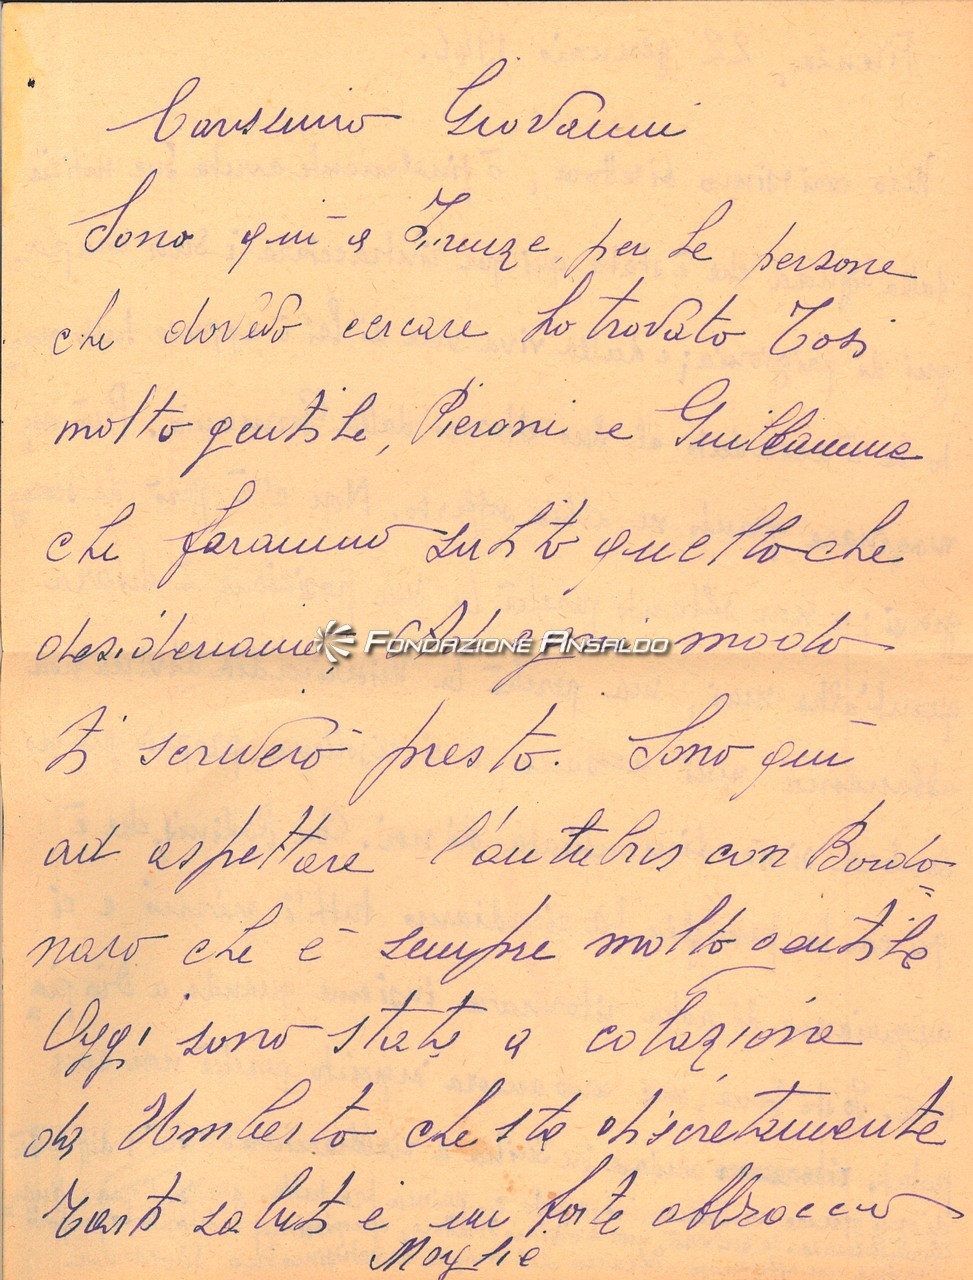 Carissimo Giovanni
Sono quì a Firenze per le persone
che dovevo cercare ho trovato Tosi
molto gentile, Pieroni e Guillaume
che faranno subito quello che
desideriamo, Ad ogni modo
FONDAZIONE ANSALDO
ti scriverò presto. Sono quì
ad aspettare l'autubus con Bordo=
naro che è sempre molto gentile
Oggi sono stata a colazione
da Umberto che sta discretamente
Tanti saluti e un forte abbraccio
Moglie